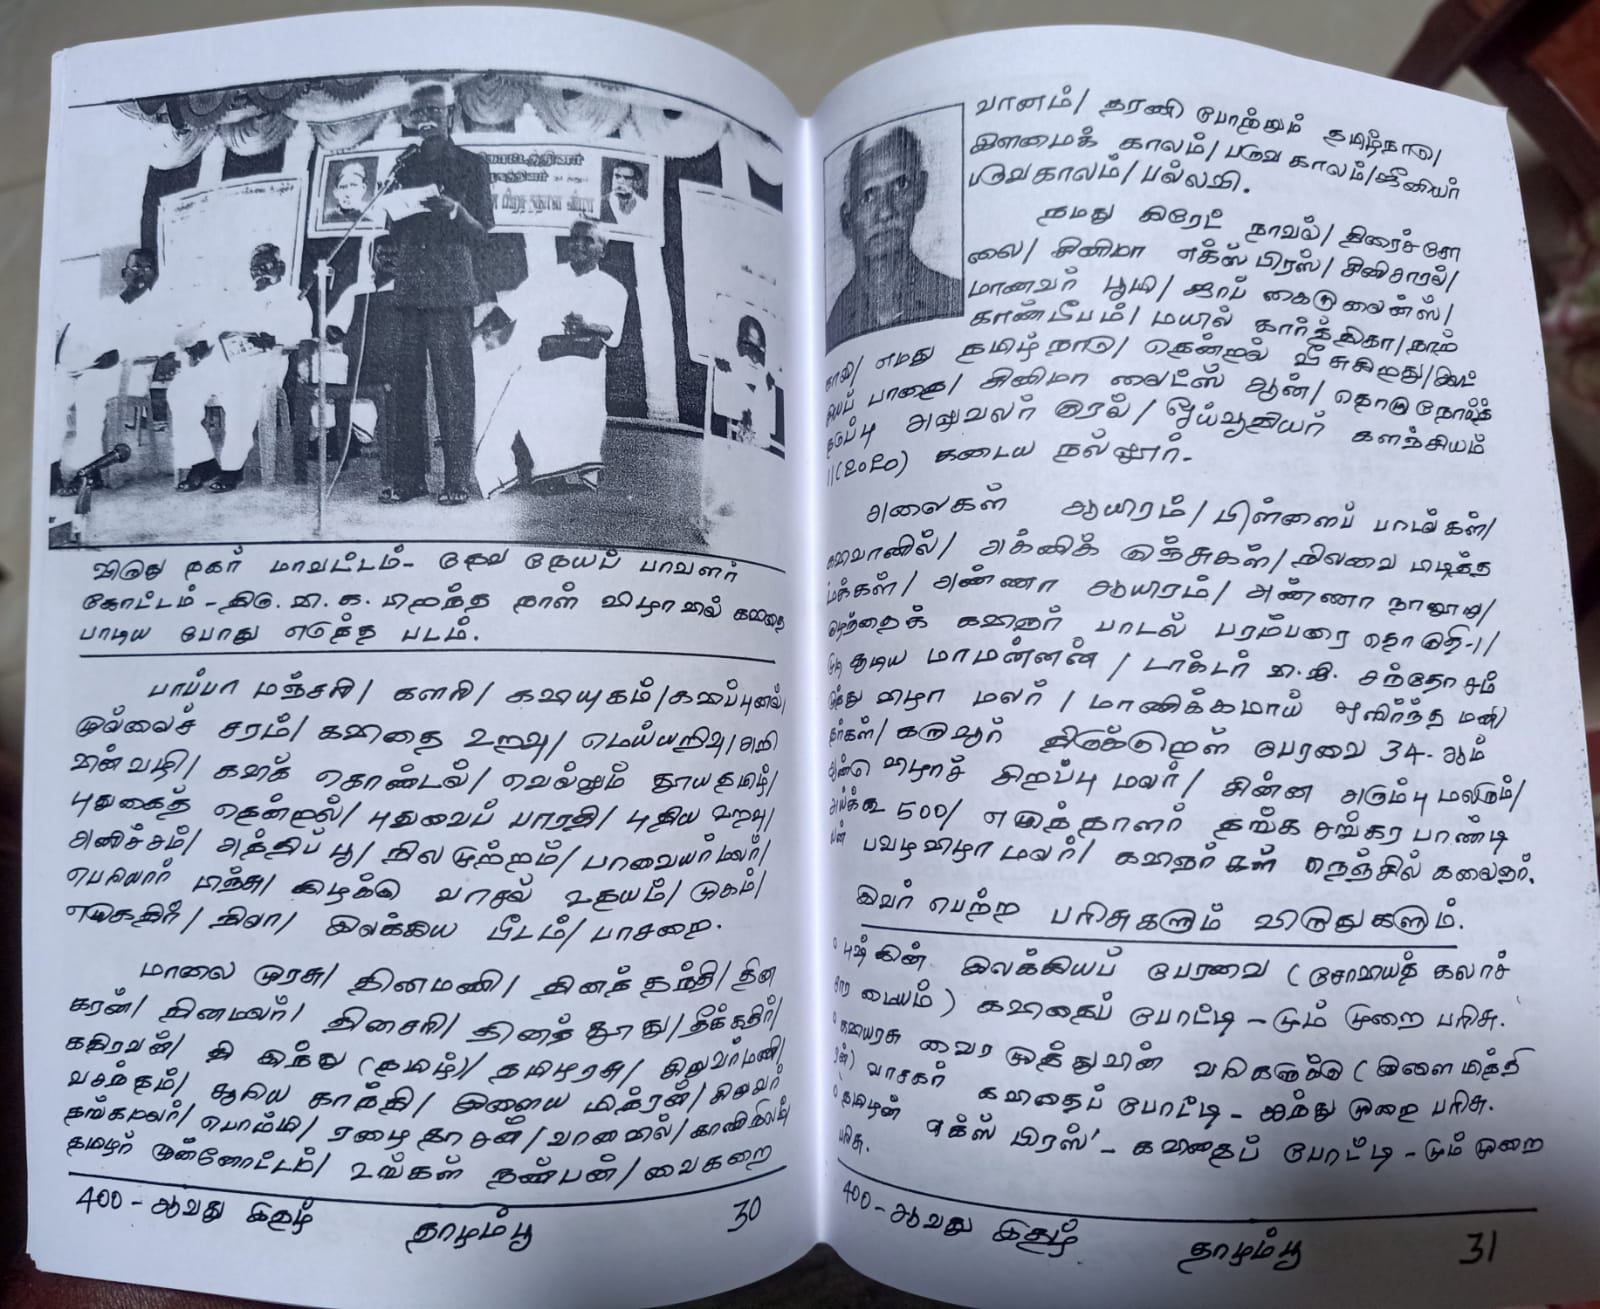 விருது நகர் மாவட்டம்- தேவ நேயப் பாவளர்
கோட்டம் - திரு. வி. க. பிறந்த நாள் விழாவில் கவிதை
பாடிய போது எடுத்த படம்.
பாப்பா மஞ்சரி/ களரி/ கவியுகம்/ கவிப்புனல்/
முல்லைச் சரம்/ கவிதை உறவு/ மெய்யறிவு/ அறி
வின்வழி/ கவிக் கொண்டல்/ வெல்லும் தூயதமிழ்/
புதுகைத் தென்றல்/ புதுவைப் பாரதி/ புதிய உறவு/
அனிச்சம்/ அத்திப் பூ/ நிலமுற்றம்/ பாவையர்மலர்/
பெரியார் பிஞ்சு/ கிழக்கு வாசல் உதயம்/ முகம்/
எழுகதிர்/ நிலா/ இலக்கிய பீடம்/ பாசறை.
மாலை முரசு/ தினமணி/ தினத் தந்தி/ தின
கரன்/ தினமலர்/ திசைரி/ தினத் தூது/ தீக்கதிர்/
கதிரவன்/ தி இந்து (தமிழ்)/ தமிழரசு/ சிறுவர்மணி/
வசந்தம்/ சூரிய காந்தி/ இளைய மித்ரன்/ சிறுவர்
தங்கமலர்/ பொம்மி/ ஏழைதாசன்/ வானவில்/ காணிநிலம்/
தமிழர் முன்னோட்டம்/ உங்கள் நண்பன்/ வைகறை
400-ஆவது இதழ் தாழம்பூ 30
வானம்/ தரணி போற்றும் தமிழ்நாடு/
இளமைக் காலம்/ பருவ காலம்/ ஜீனியர்
பருவகாலம்/ பல்லவி.
நமது கிரேட் நாவல்/ திரைச்சோ
லை/ சினிமா எக்ஸ்பிரஸ்/ சினிசாரல்/
மாணவர் பூமி/ ஜாப் கைடுலைன்ஸ்/
காண்டீபம்/ மயில் கார்த்திகா/ நாற்
காலி/ எமது தமிழ்நாடு/ தென்றல் வீசுகிறது/ லட்
சியப் பாதை/ சினிமா லைட்ஸ் ஆன்/ தொழுநோய்த்
தடுப்பு அலுவலர் குரல்/ ஓய்வூதியர் களஞ்சியம்
கடைய நல்லூர்.
அலைகள் ஆயிரம்/ பிள்ளைப் பாடல்கள்/
கவிவானில்/ அக்னிக் குஞ்சுகள்/ நிலவை பிடித்த
மக்கள்/ அண்ணா ஆயிரம்/ அண்ணா நானூறு/
குழந்தைக் கவிஞர் பாடல் பரம்பரை தொகுதி-1/
முடி சூடிய மாமன்னன்/ டாக்டர் வி.ஜி. சந்தோசம்
முத்து விழா மலர்/ மாணிக்கமாய் ஒளிர்ந்த மனி
தர்கள்/ கருவூர் திருக்குறள் பேரவை 34-ஆம்
ஆண்டு விழாச் சிறப்பு மலர்/ சின்ன அரும்பு மலரும்/
அய்க்கூ 500/ எழுத்தாளர் தங்க சங்கர பாண்டி
யன் பவழவிழா மலர்/ கவிஞர்கள் நெஞ்சில் கலைஞர்.
இவர் பெற்ற பரிசுகளும் விருதுகளும்.
° புஷ்கின் இலக்கியப் பேரவை (சோவியத் கலாச்
சார மையம்) கவிதைப் போட்டி - மும் முறை பரிசு.
° கவியரசு வைரமுத்துவின் வரிகளுக்கு (இளைய மித்தி
ரன்) வாசகர் கவிதைப் போட்டி - ஐந்து முறை பரிசு.
° 'தமிழன் எக்ஸ்பிரஸ்' - கவிதைப் போட்டி - மும் முறை
பரிசு.
400-ஆவது இதழ் தாழம்பூ 31